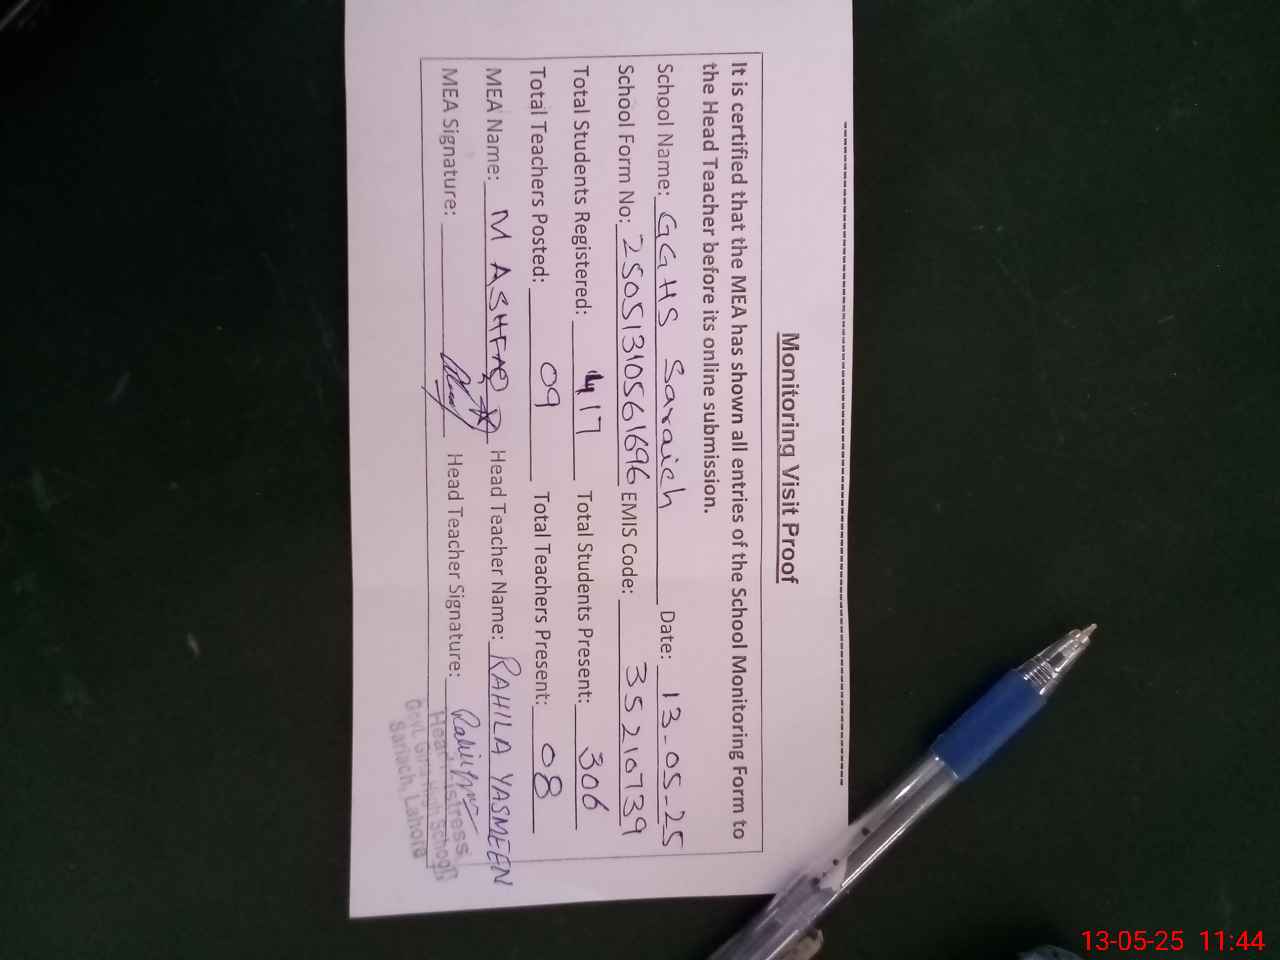 Monitoring Visit Proof
It is certified that the MEA has shown all entries of the School Monitoring Form to
the Head Teacher before its online submission.
School Name: GGHS Saraich Date: 13-05-25
School Form No: 25051310561696 EMIS Code: 35210739
Total Students Registered: 417 Total Students Present: 306
Total Teachers Posted: 09 Total Teachers Present: 08
MEA Name: M ASHFAQ Head Teacher Name: RAHILA YASMEEN
MEA Signature: Head Teacher Signature:
Headmistress
Govt. Girls High School
Sariach, Lahore
13-05-25 11:44